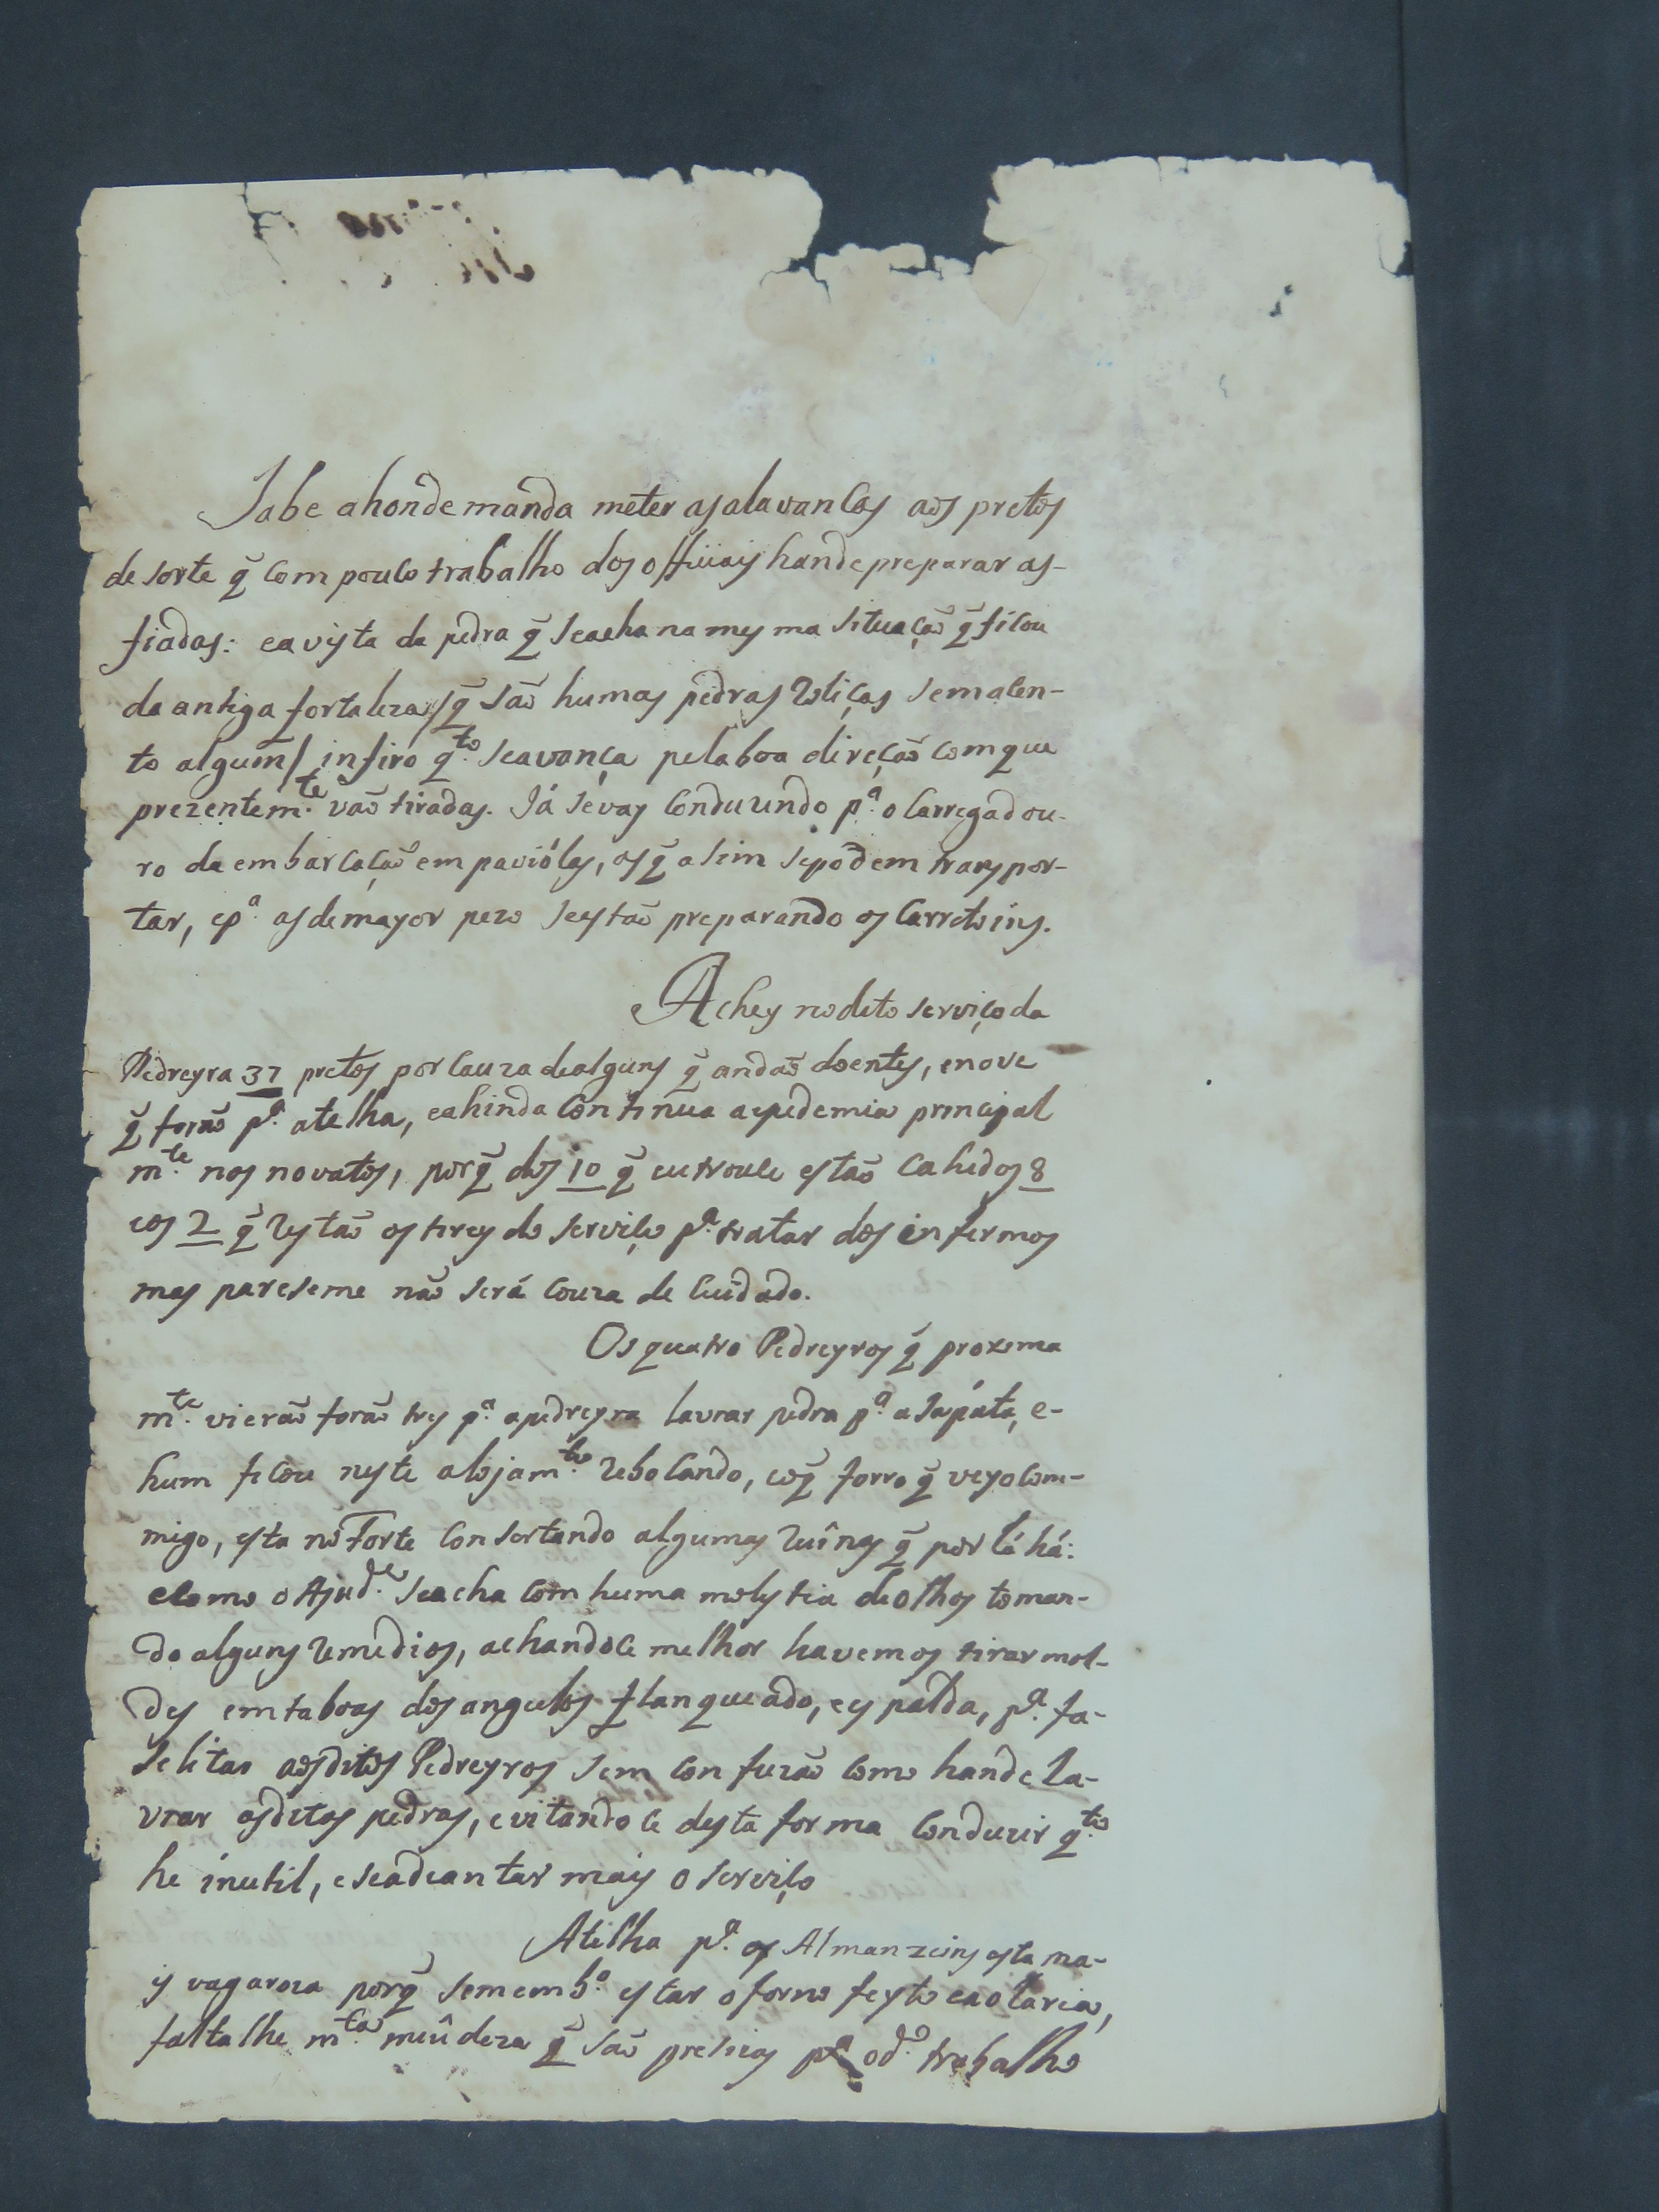 Sabe ahonde manda meter as alavancas aos pretos
de sorte q̃ com pouco trabalho dos officiais hande preparar as-
fiadas: ea vista da pedra q̃ seacha na mesma situaçaõ q̃ ficou
da antiga fortaleza / q̃ saõ humas pedras roliças sem alen-
to algum / infiro q.to seavança pela boa direçaõ comque
prezentem.te vaõ tiradas. Já sevay conduzindo p.a o carregadou-
ro da embarcaçaõ em paviólas, as q̃ asim sepodem transpor-
tar, ep.a as demayor pezo seestaõ preparando os carretoins.
Achey no dito serviço da
Pedreyra 37 pretos por cauza dealguns q̃ andaõ doentes, enove
q̃ foraõ p.a atelha, eahinda continua aepedemia principal
m.te nos novatos, porq̃ dos 10 q̃ eu trouce estaõ cahidos 8
eos 2 q̃ restaõ os tirey do serviço p.a tratar dos infermos
mas pareseme naõ será couza de cuidado.
Os quatro Pedreyros q̃ proxima
m.te vieraõ foraõ tres p.a apedreyra lavrar pedra p.a a sapáta, e-
hum ficou neste alojam.to rebocando, eoq̃ forro q̃ veyo com-
migo, esta no Forte consertando algumas ruînas q̃ por lá há:
ecomo o Ajud.e seacha com huma molestia deolhos toman-
do alguns remedios, achandoce melhor havemos tirar mol-
des emtaboas dos angulos flanqueado, eespalda, p.a fa-
selitar aosditos Pedreyros sem confuzaõ como hande la-
vrar asditas pedras, evitandoce desta forma conduzir q.to
he inutil, eseadeantar mais o serviço
Atelha p.a os Almanzeins esta ma-
is vagaroza porq̃ semem b.o estar oforno feyto eaolaria,
faltalhe m.ta meûdeza q̃ saõ presizas p.a od.o trabalho